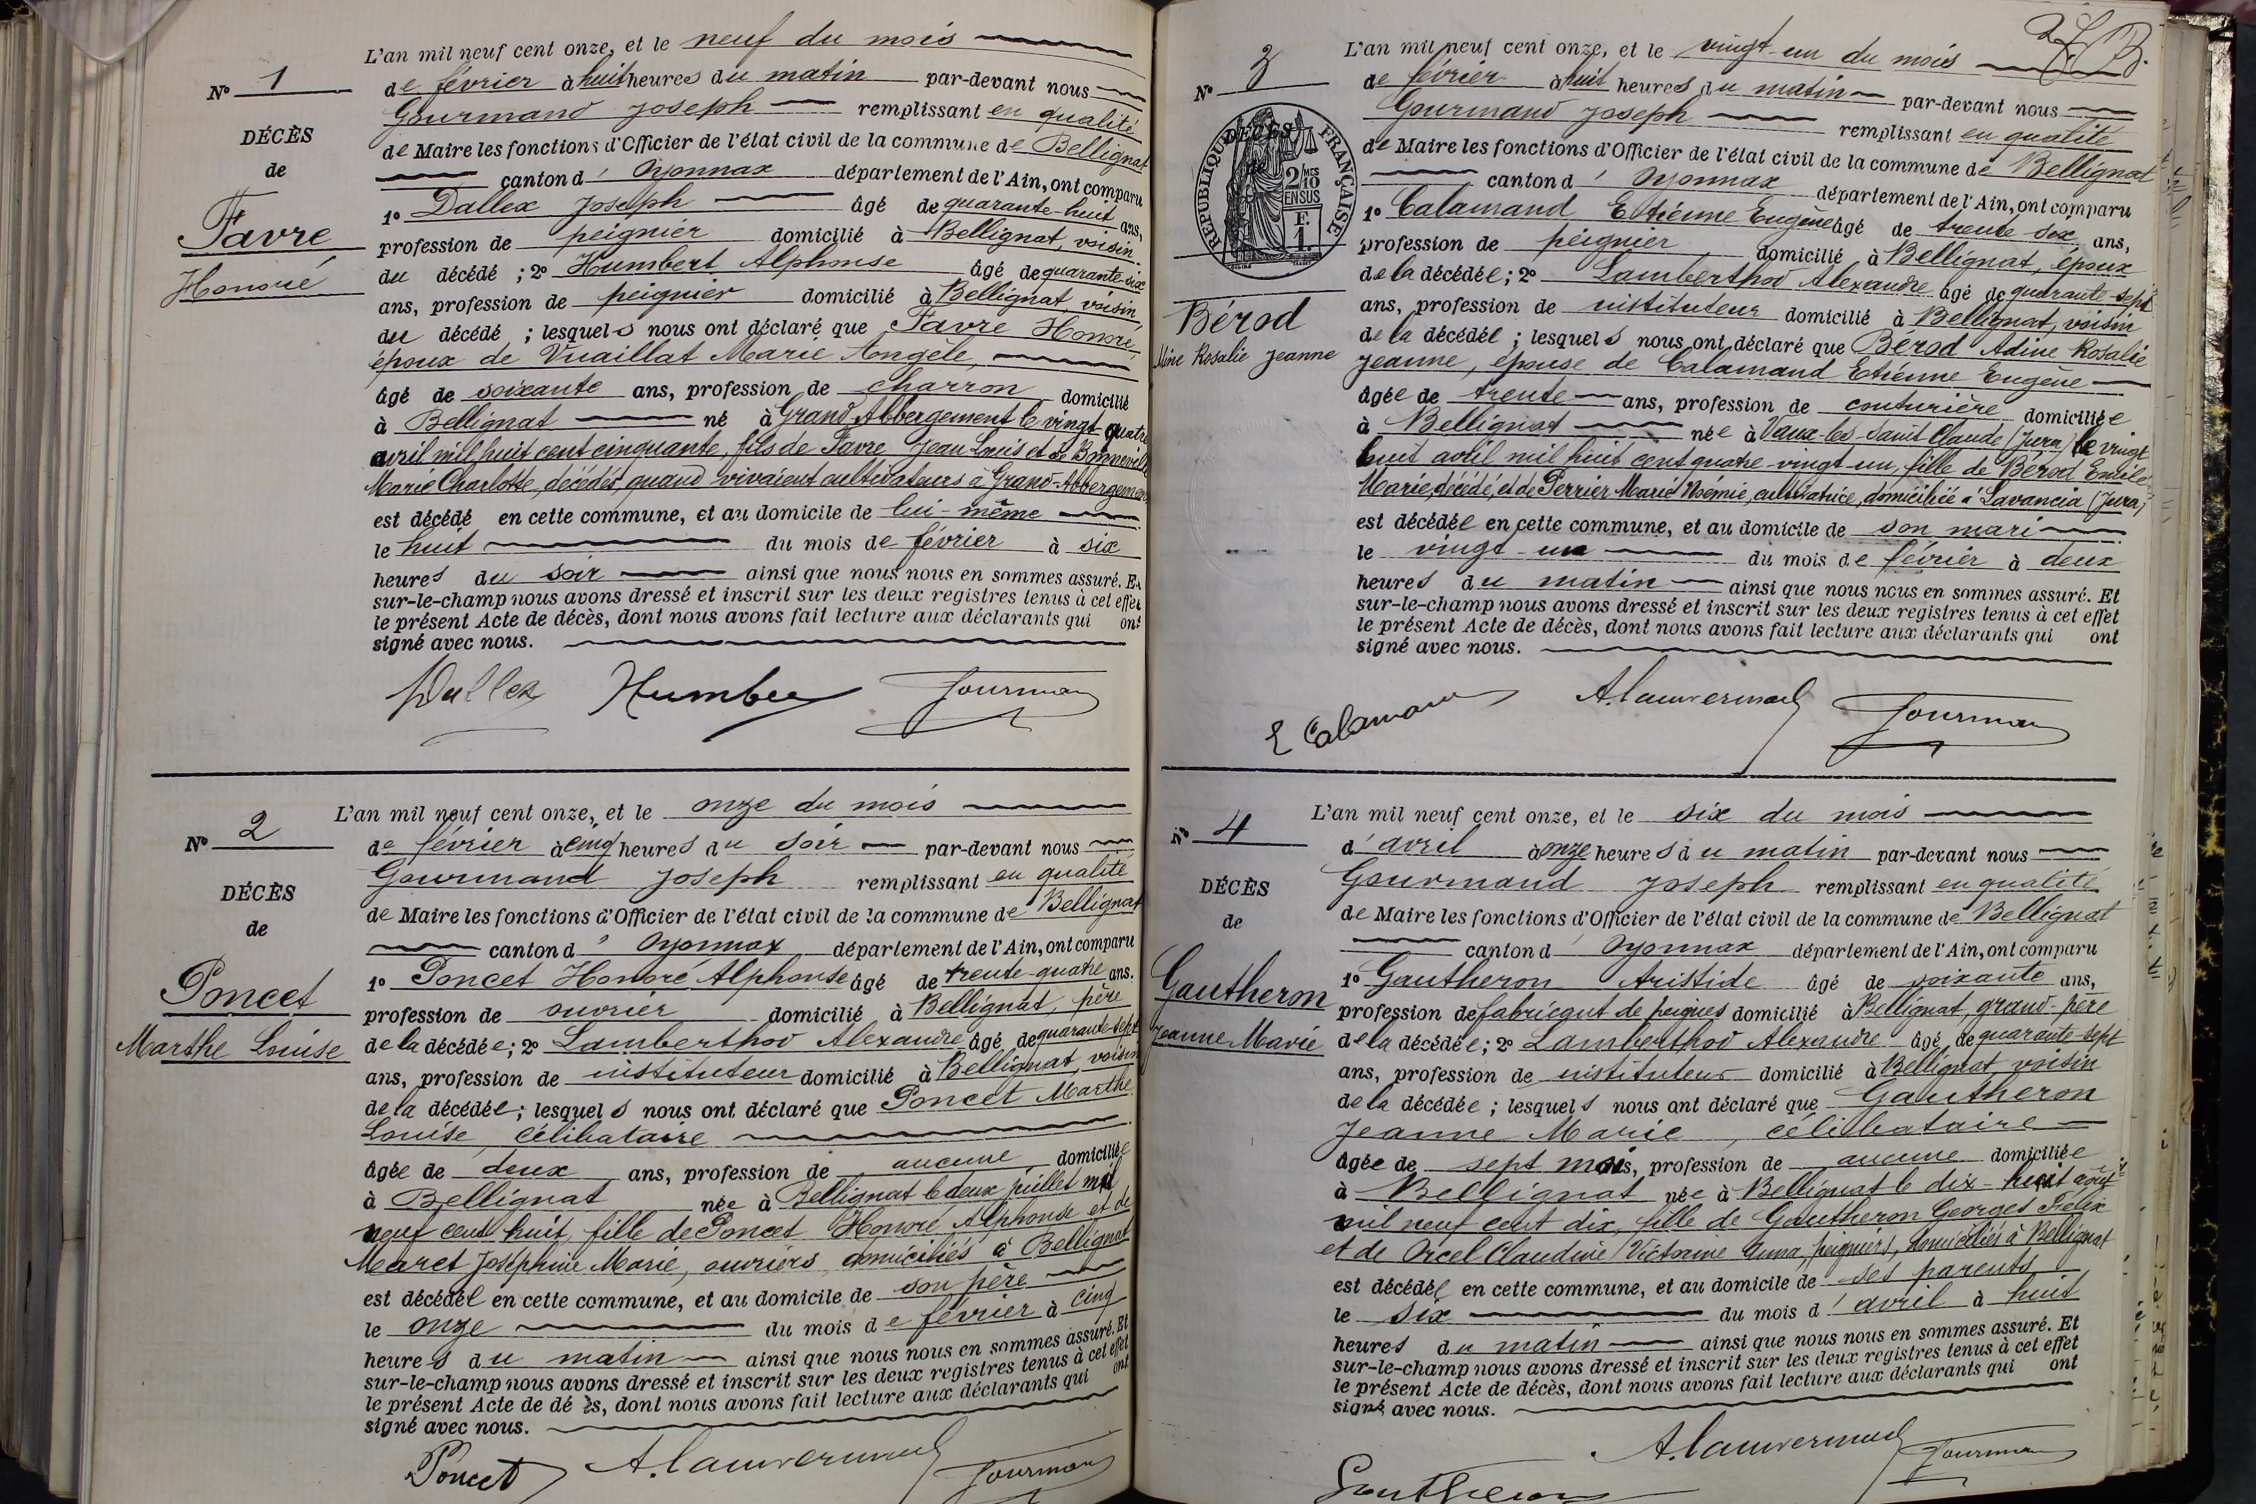 L'an mil neuf cent onze, et le neuf du mois
N° 1
de février à huit heures du matin par-devant nous
Gourmand Joseph remplissant en qualité
DÉCÈS
de Maire les fonctions d'Officier de l'état civil de la commune de Bellignat
de
canton d'Oyonnax département de l'Ain, ont comparu
1° Dallex Joseph âgé de quarante-huit ans,
Favre
profession de peignier domicilié à Bellignat, voisin
Honoré
du décédé ; 2° Humbert Alphonse âgé de quarante-six
ans, profession de peignier domicilié à Bellignat, voisin
du décédé ; lesquels nous ont déclaré que Favre Honoré,
époux de Vuaillat Marie Angèle,
âgé de soixante ans, profession de charron domicilié
à Bellignat né à Grand Abbergement le vingt quatre
avril mil huit cent cinquante, fils de Favre Jean Louis et de
Marie Charlotte, décédés, quand vivaient cultivateurs à Grand-Abbergement
est décédé en cette commune, et au domicile de lui-même
le huit du mois de février à six
heures du soir ainsi que nous nous en sommes assuré. Et
sur-le-champ nous avons dressé et inscrit sur les deux registres tenus à cet effet
le présent Acte de décès, dont nous avons fait lecture aux déclarants qui ont
signé avec nous.
Dallex Humber Gourman
L'an mil neuf cent onze, et le onze du mois
N° 2
de février à cinq heures du soir par-devant nous
Gourmand Joseph remplissant en qualité
DÉCÈS
de Maire les fonctions d'Officier de l'état civil de la commune de Bellignat
de
canton d'Oyonnax département de l'Ain, ont comparu
1° Poncet Honoré Alphonse âgé de trente-quatre ans.
Poncet
profession de ouvrier domicilié à Bellignat, père
Marthe Louise
de la décédée ; 2° Lamberthod Alexandre âgé de quarante-sept
ans, profession de instituteur domicilié à Bellignat, voisin
de la décédée ; lesquels nous ont déclaré que Poncet Marthe
Louise, célibataire
âgée de deux ans, profession de aucune domiciliée
à Bellignat née à Bellignat le deux juillet mil
neuf cent huit, fille de Poncet Honoré Alphonse et de
Maret Joséphine Marie, ouvriers domiciliés à Bellignat
est décédée en cette commune, et au domicile de son père
le onze du mois de février à cinq
heures du matin ainsi que nous nous en sommes assuré. Et
sur-le-champ nous avons dressé et inscrit sur les deux registres tenus à cet effet
le présent Acte de dé ès, dont nous avons fait lecture aux déclarants qui ont
signé avec nous.
Poncet Gourman
L'an mil neuf cent onze, et le vingt-un du mois
N° 3
de février à huit heures du matin par-devant nous
Gourmand Joseph remplissant en qualité
DÉCÈS
RÉPUBLIQUE FRANÇAISE
2/10 MES
EN SUS
F.
1.
de Maire les fonctions d'Officier de l'état civil de la commune de Bellignat
de
canton d'Oyonnax département de l'Ain, ont comparu
1° Calamand Etienne Eugène âgé de trente-six ans,
profession de peignier domicilié à Bellignat, époux
de la décédée ; 2° Lamberthod Alexandre âgé de quarante-sept
ans, profession de instituteur domicilié à Bellignat, voisin
Bérod
de la décédée ; lesquels nous ont déclaré que Bérod Adine Rosalie
Rosalie Jeanne
Jeanne, épouse de Calamand Etienne Eugène
âgée de trente ans, profession de couturière domiciliée
à Bellignat née à Vaux-les-Saint Claude (Jura) le vingt
huit avril mil huit cent quatre-vingt-un, fille de Bérod Emile
Marie, décédé, et de Perrier Marie Noémie, cultivatrice, domiciliée à Lavancia (Jura)
est décédée en cette commune, et au domicile de son mari
le vingt-un du mois de février à deux
heures du matin ainsi que nous nous en sommes assuré. Et
sur-le-champ nous avons dressé et inscrit sur les deux registres tenus à cet effet
le présent Acte de décès, dont nous avons fait lecture aux déclarants qui ont
signé avec nous.
E Calamand Gourman
L'an mil neuf cent onze, et le six du mois
N° 4
d'avril à onze heures du matin par-devant nous
Gourmand Joseph remplissant en qualité
DÉCÈS
de Maire les fonctions d'Officier de l'état civil de la commune de Bellignat
de
canton d'Oyonnax département de l'Ain, ont comparu
1° Gautheron Aristide âgé de soixante ans,
Gautheron
profession de fabricant de peignes domicilié à Bellignat, grand-père
Jeanne Marie
de la décédée ; 2° Lamberthod Alexandre âgé de quarante-sept
ans, profession de instituteur domicilié à Bellignat, voisin
de la décédée ; lesquels nous ont déclaré que Gautheron
Jeanne Marie, célibataire
âgée de sept mois, profession de aucune domiciliée
à Bellignat née à Bellignat le dix-huit août
mil neuf cent dix, fille de Gautheron Georges Félix
et de Orcel Claudine Victorine Anna, peigniers, domiciliés à Bellignat
est décédée en cette commune, et au domicile de ses parents
le six du mois d'avril à huit
heures du matin ainsi que nous nous en sommes assuré. Et
sur-le-champ nous avons dressé et inscrit sur les deux registres tenus à cet effet
le présent Acte de décès, dont nous avons fait lecture aux déclarants qui ont
signé avec nous.
Gautheron Gourman